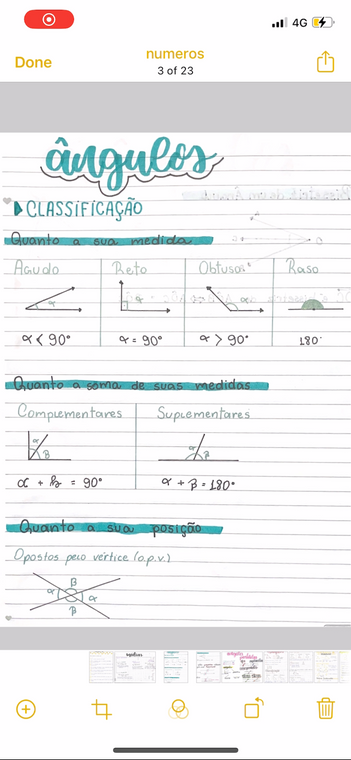 4G
Done
numeros
3 of 23
ângulos
CLASSIFICAÇÃO
Quanto a sua medida
Agudo Reto Obtuso Raso
α α α
α < 90° α = 90° α > 90° 180°
Quanto a soma de suas medidas
Complementares Suplementares
α β α β
α + β = 90° α + β = 180°
Quanto a sua posição
Opostos pelo vértice (o.p.v.)
β
α α
β